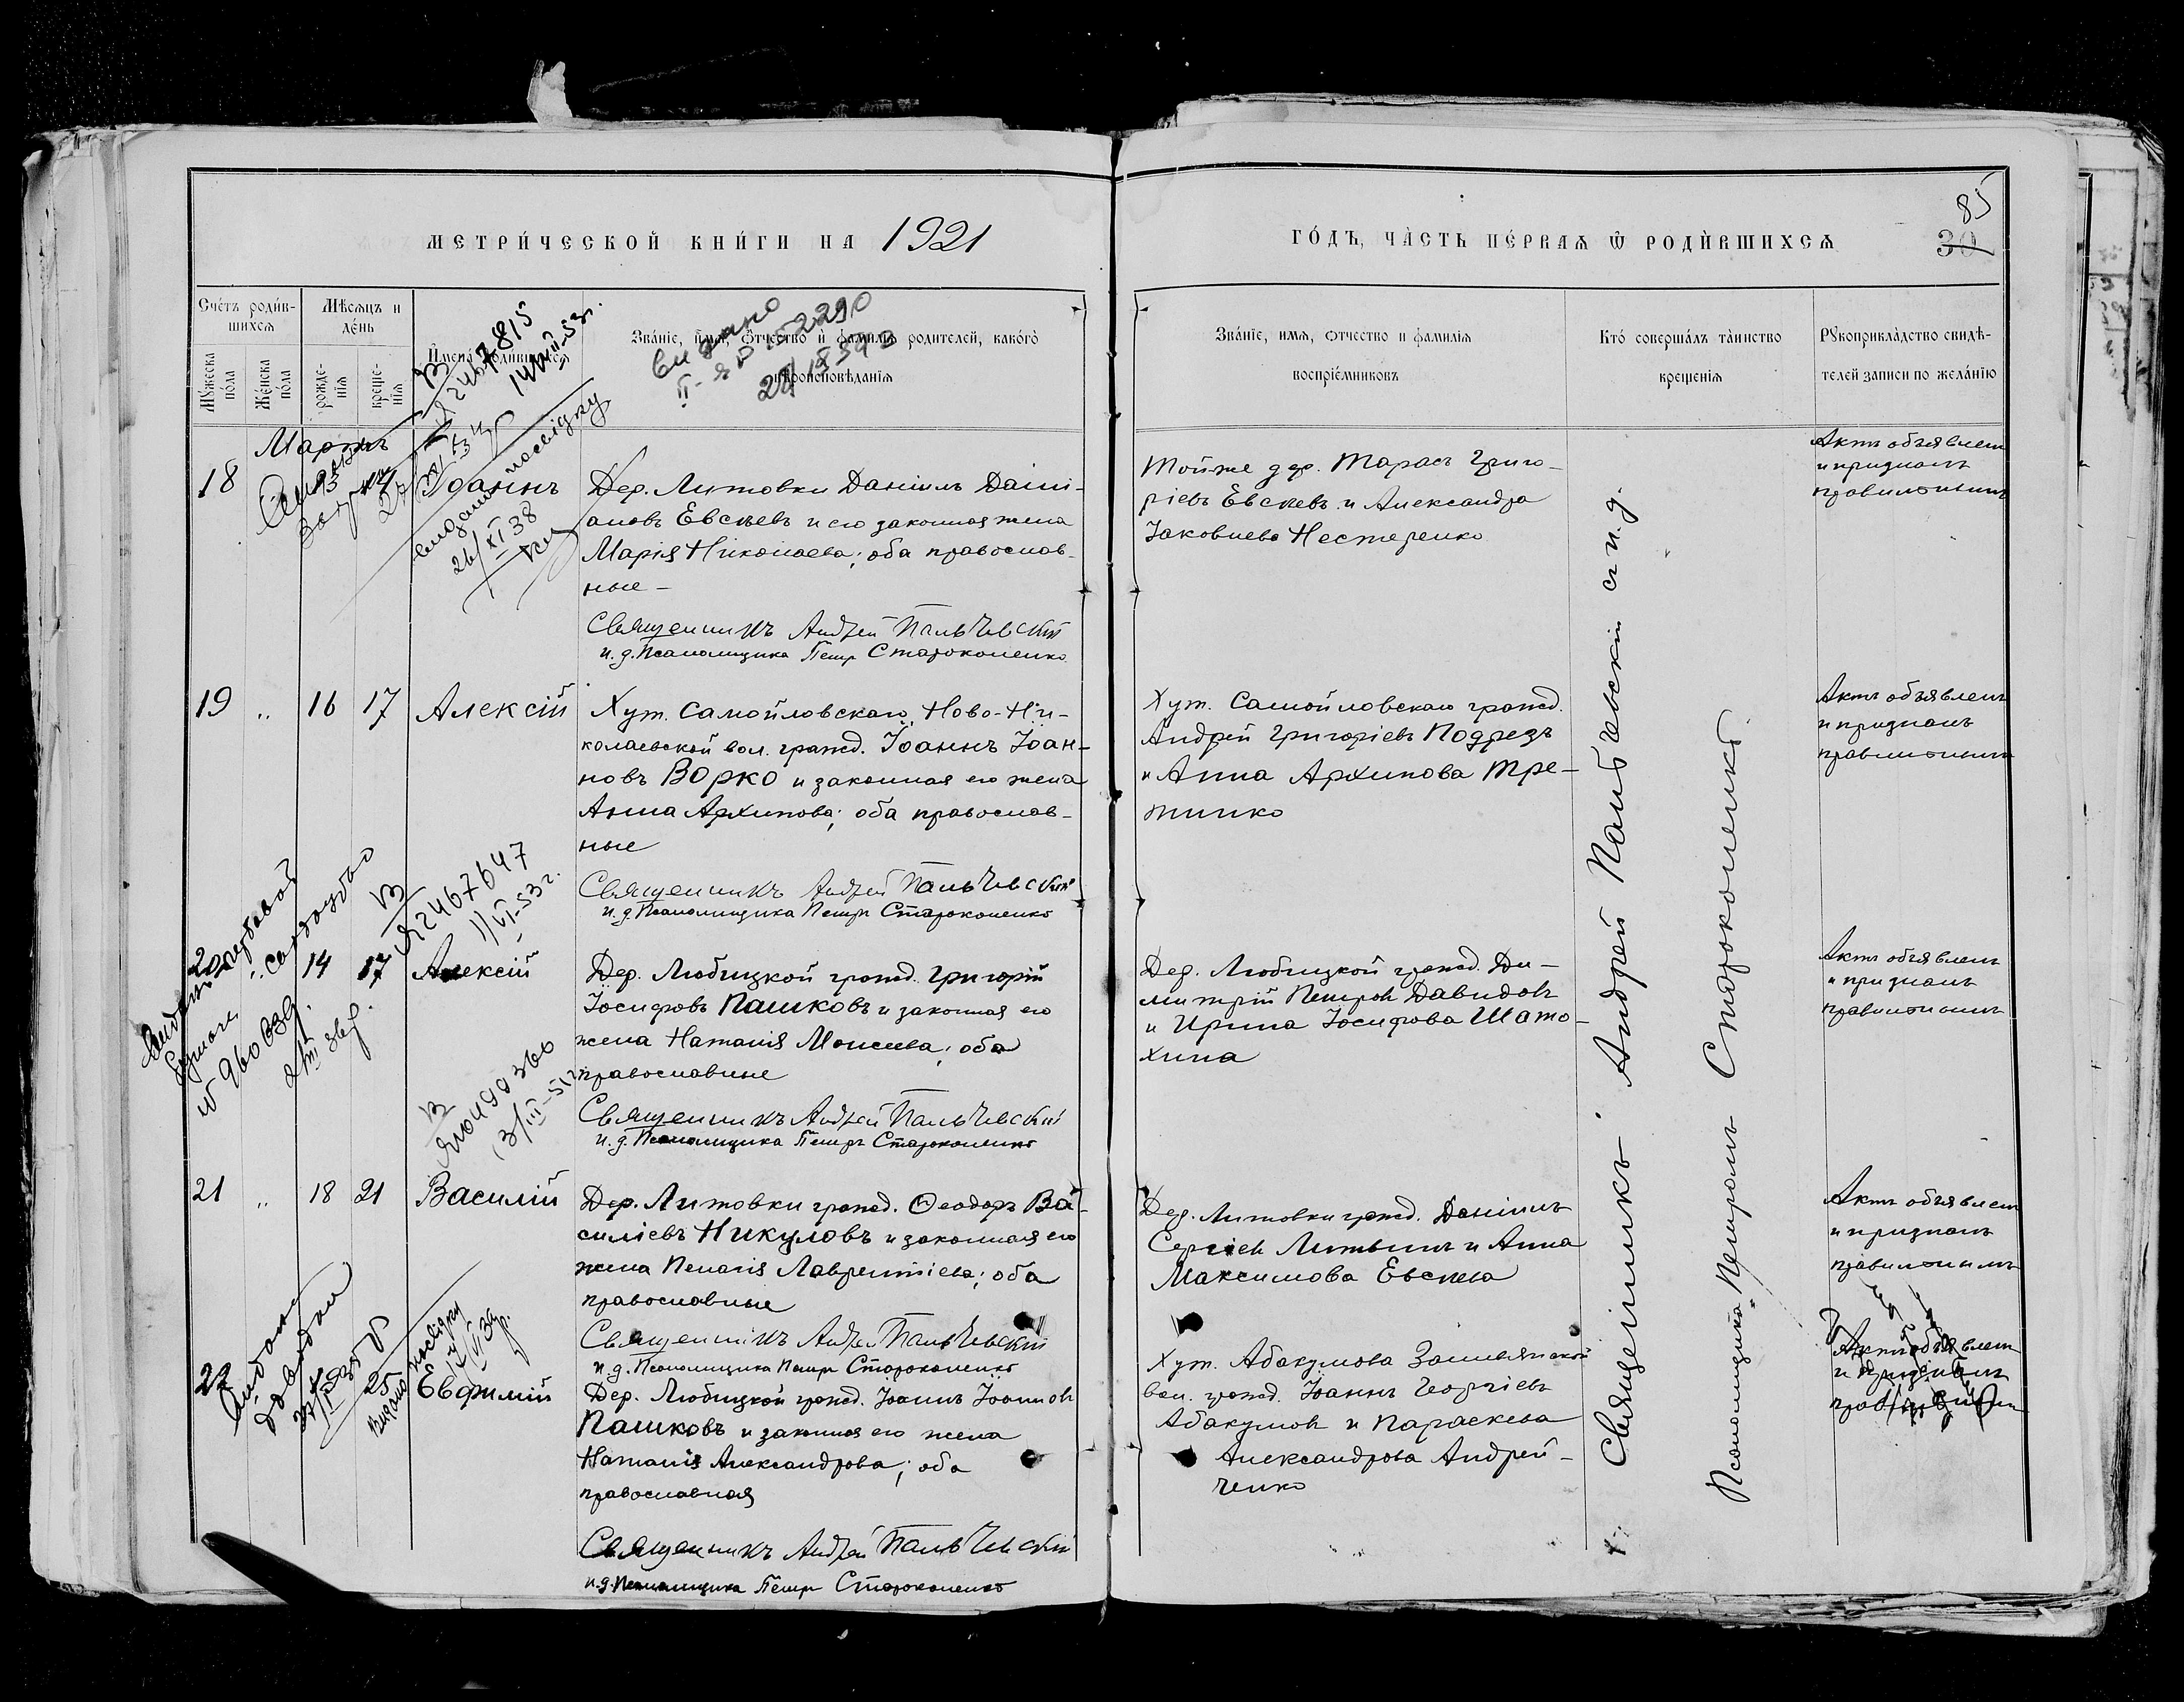 МЕТРИ́ЧЕСКОЙ КНИ́ГИ НА 1921
ГО́ДЪ, ЧА́СТЬ ПЕ́РВАѦ Ѿ РОДИ́ВШИХСѦ
85
30
Счетъ роди́в-
шихсѧ
Мѣсѧцъ и
де́нь
Мꙋ́жеска по́ла
Же́нска по́ла
рожде-
нїѧ
креще-
нїѧ
Имена̀ роди́вшихсѧ
Зва́нїе, и́мѧ, ѻ́тчество и҆ фами́лїѧ родителей, како́гѡ
вѣроисповѣ́данїѧ
Зва́нїе, имѧ, ѻтчество и фамилїѧ
воспрїе́мниковъ
Кто́ соверша́лъ та́инство
креще́нїѧ
Рꙋкоприкла́дство свидѣ-
телей записи по жела́нїю
видано
14/VII-53г.
Мартъ
18
Іоаннъ
видано посвідку
26/XI 38
Дер. Литовки Даніилъ Даніи-
ловъ Евсѣевъ и его законная жена
Марія Николаева; оба православ-
ные —
Священникъ Андрей Пальчевскій
и.д. Псаломщика Петръ Староконенко
Тойже дер. Тарасъ Григо-
ріевъ Евсѣевъ и Александра
Іаковлева Нестеренко
Актъ объявленъ
и признанъ
правильнымъ
19 „ 16 17 Алексій
Хут. Самойловскаго, Ново-Ни-
колаевской вол. гражд. Іоаннъ Іоан-
новъ Ворко и законная его жена
Анна Архипова; оба православ-
ные
Священникъ Андрей Пальчевскій
и.д. Псаломщика Петръ Староконенко
Хут. Самойловскаго гражд.
Андрей Григоріевъ Подрезъ
и Анна Архипова Тре-
Актъ объявленъ
и признанъ
правильнымъ
2467647
11/VI-53г.
20 „ 14 17 Алексій
Дер. Любицкой гражд. Григорій
Іосифовъ Пашковъ и законная его
жена Наталія Моисеева; оба
православные
Священникъ Андрей Пальчевскій
и.д. Псаломщика Петръ Староконенко
Дер. Любицкой гражд. Ди-
митрій Петровъ Давидовъ
и Ирина Іосифова Шато-
хина
Актъ объявленъ
и признанъ
правильнымъ
21 „ 18 21 Василій
Дер. Литовки гражд. Ѳеодоръ Ва-
силіевъ Никуловъ и законная его
жена Пелагія Лаврентіева; оба
православные
Священникъ Андрей Пальчевскій
и.д. Псаломщика Петръ Староконенко
Дер. Литовки гражд. Даніилъ
Сергіевъ Литвинъ и Анна
Максимова Евсѣева
Актъ объявленъ
и признанъ
правильнымъ
22
25 Евфимій
видано посвідку
Дер. Любицкой гражд. Іоаннъ Іоанновъ
Пашковъ и законная его жена
Наталія Александрова; оба
православная
Священникъ Андрей Пальчевскій
и.д. Псаломщика Петръ Староконенко
Хут. Абакумова
вол. гражд. Іоаннъ Георгіевъ
Абакумовъ и Параскева
Александрова Андрей-
ченко
Актъ объявленъ
и признанъ
Священникъ Андрей Пальчевскій съ и.д.
Псаломщика Петромъ Староконенко.